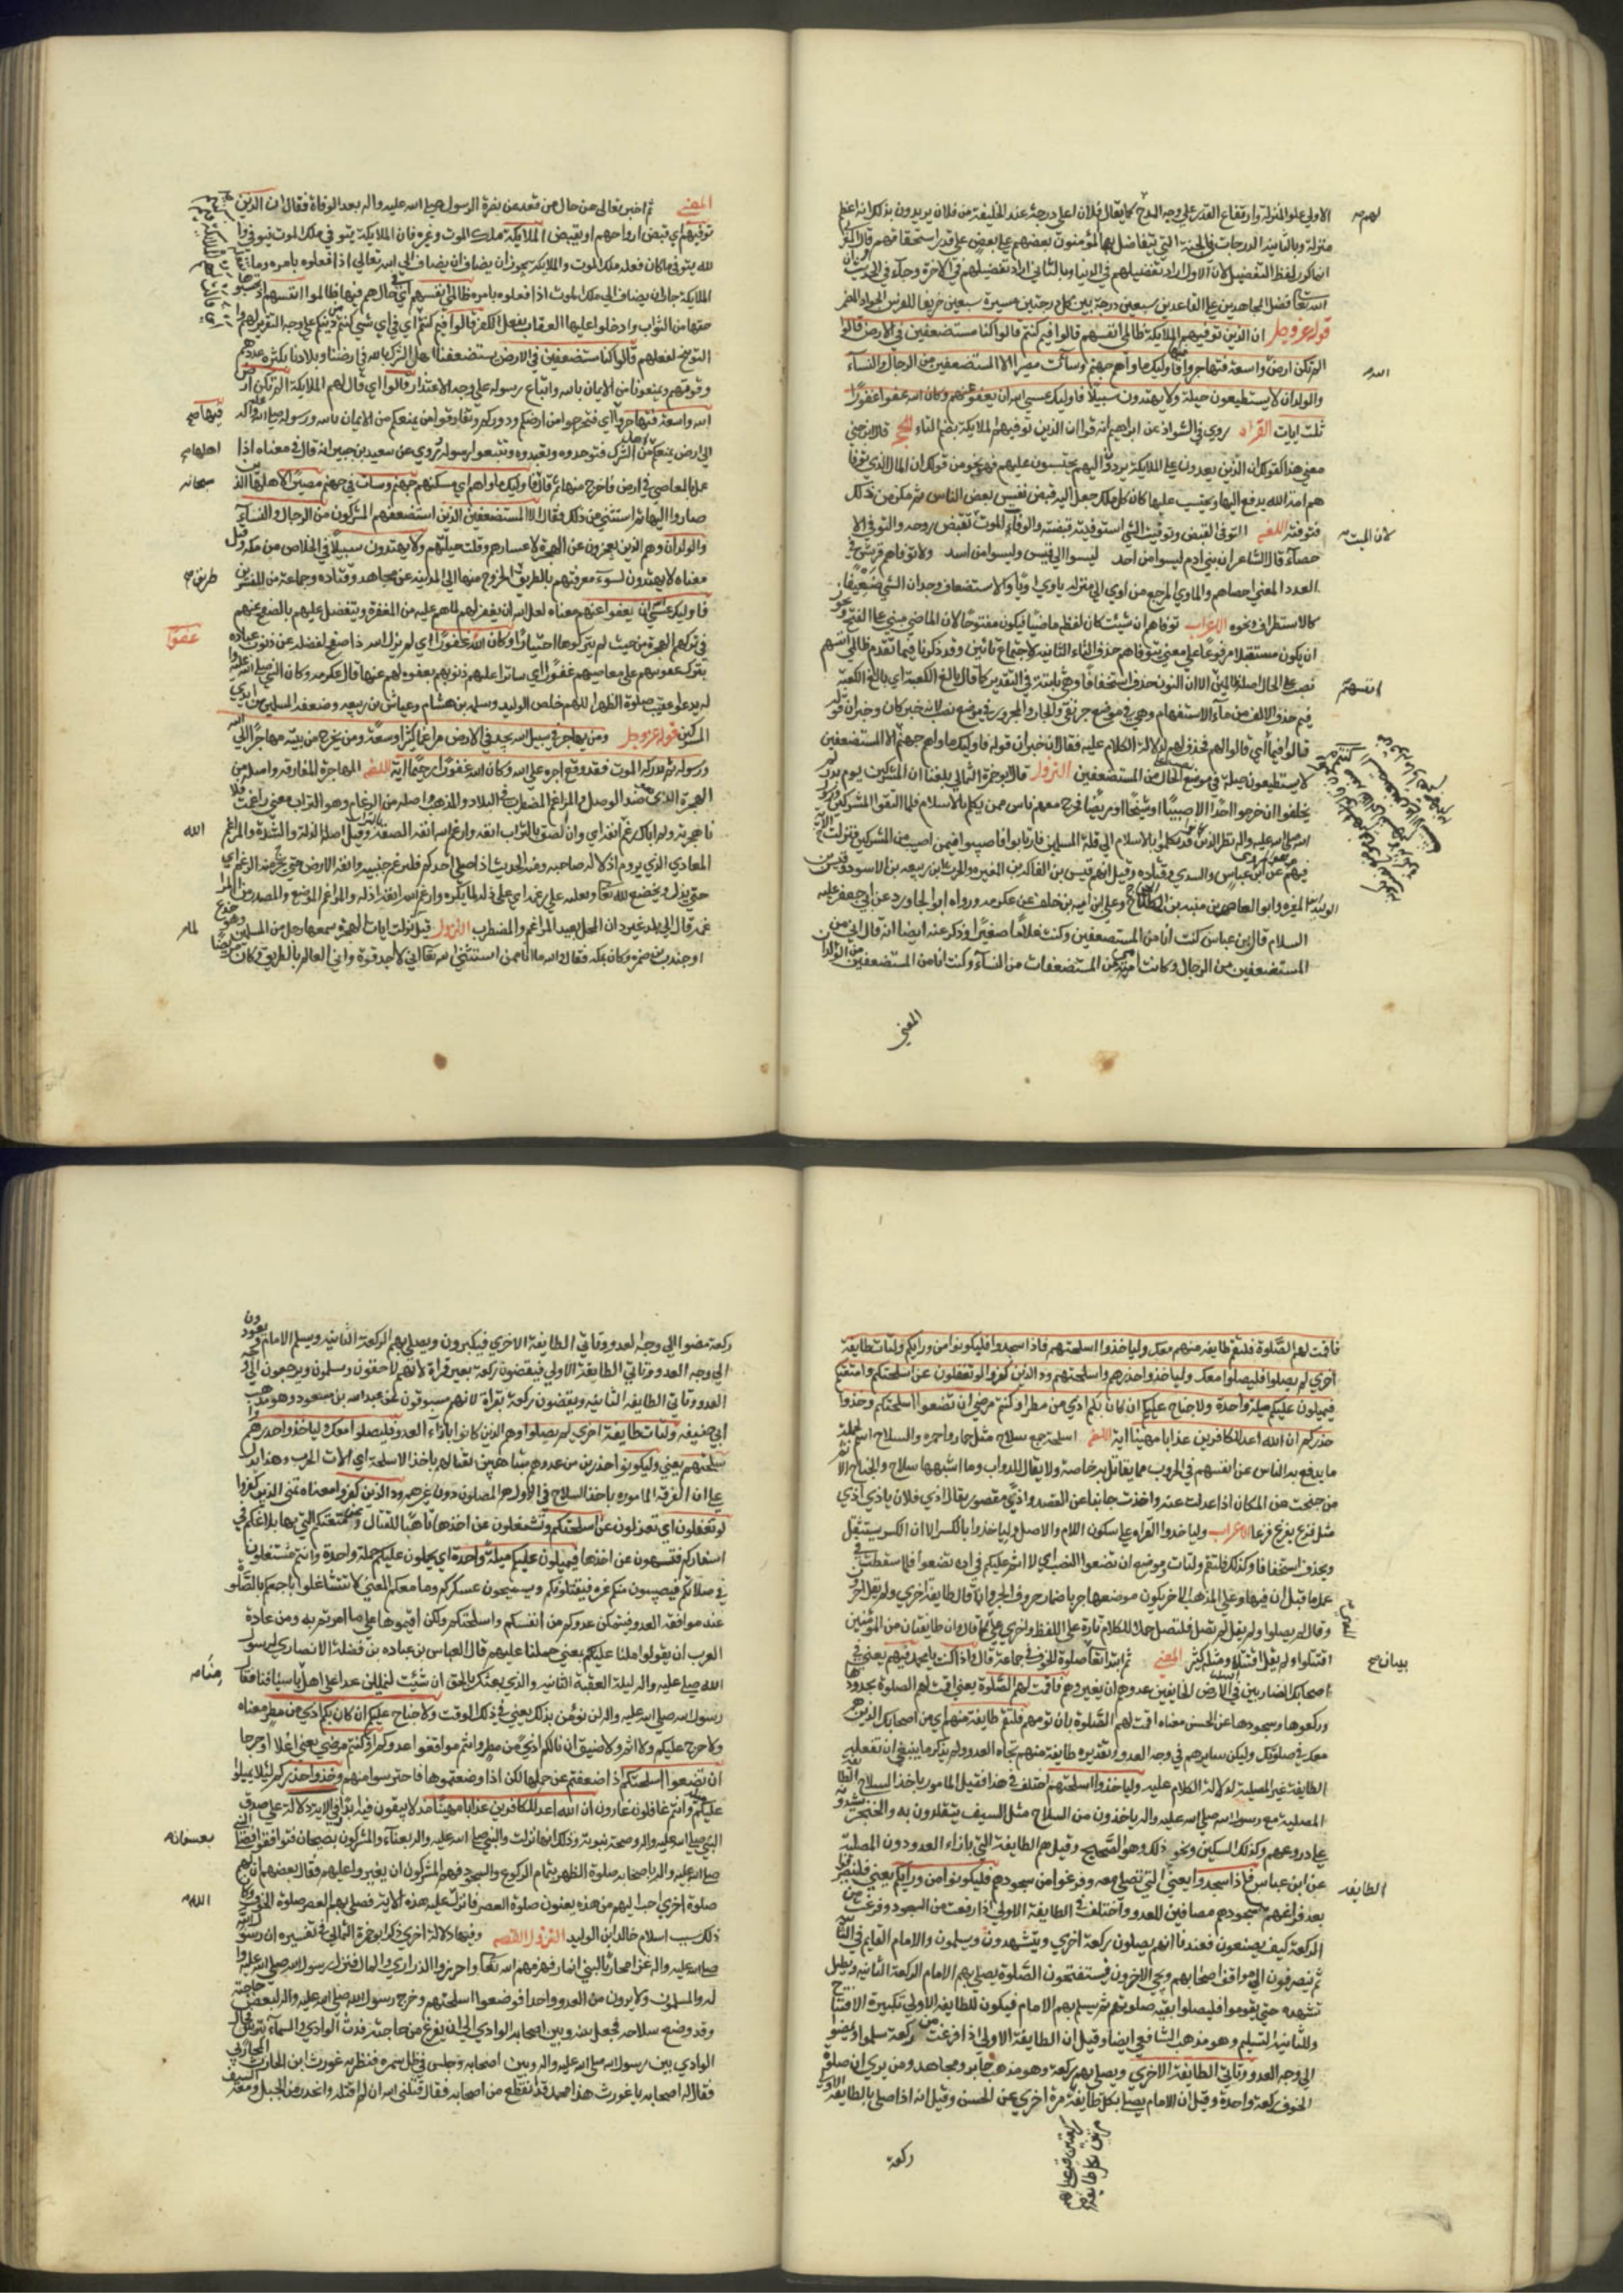 الاولى علو المنزلة وارتفاع القدر على وجه المدح كما يقال فلان اعلى درجة عند الخليفة من فلان يريدون بذلك انه اعظم
منزلة وبالثانية الدرجات في الجنة التي يتفاضل بها المؤمنون بعضهم على بعض على قدر استحقاقهم
انما كرر لفظ التفضيل لان الاول اراد تفضيلهم في الدنيا وبالثاني اراد تفضيلهم في الاخرة وجآء في الحديث ان
الله تعالى فضل المجاهدين على القاعدين سبعين درجة بين كل درجتين مسيرة سبعين خريفا للفرس الجواد المضمر
قوله عز وجل ان الذين توفيهم الملايكة ظالمي انفسهم قالوا فيم كنتم قالوا كنا مستضعفين في الارض قالوا
الم تكن ارض الله واسعة فتهاجروا فيها فاوليك ماواهم جهنم وسآئت مصيرا الا المستضعفين من الرجال والنسآء
والولدان لا يستطيعون حيلة ولا يهتدون سبيلا فاوليك عسى الله ان يعفو عنهم وكان الله عفوا غفورا
ثلث ايات القراة روي في الشواذ عن ابراهيم انه قرا ان الذين توفيهم الملايكة بضم التاء الحجة قال ابن جني
معنى هذا كقولك ان الذين يعدون على الملايكة يردون اليهم يحتسبون عليهم فهو نحو من قولك ان المال الذي توفاه
هم امة الله يدفع اليها ويحتسب عليها كان كل ملك جعل اليه قبض نفس بعض الناس ثم مكن من ذلك
فتوفته اللغة التوفي القبض وتوفيت الشي استوفيته قبضته والوفاة الموت لان الميت تقبض روحه والتوفي الا
حصآء قال الشاعر ان بني ادم ليسوا من احد ليسوا الى قيس وليسوا من اسد ولا توفاهم قريش في
العدد المعنى احصاهم والماوى المرجع من اوى الى منزله ياوي اويا والاستضعاف وجدان الشي ضعيفا
كالاستطراف ونحوه الاعراب توفاهم ان شئت كان لفظه ماضيا فيكون مفتوحا لان الماضي مبني على الفتح ويجوز
ان يكون مستقبلا مرفوعا على معنى تتوفاهم حذف التاء الثانية لاجتماع تائين وقد ذكرنا فيما تقدم ظالمي انفسهم
نصب على الحال اصله ظالمين الا ان النون حذف استخفافا وهي ثابتة في التقدير كما قال بالغ الكعبة اي بالغا الكعبة
فيم حذف الالف من ما الاستفهام وهي في موضع جر بفي والجار والمجرور في موضع نصب لانه خبر كان وخبر ان قوله
قالوا فيم اي قالوا لهم فحذف لهم لدلالة الكلام عليه فقال ان خبر ان قوله فاوليك ماواهم جهنم الا المستضعفين
لا يستطيعون صلة في موضع الحال من المستضعفين النزول قال ابو حمزة الثمالي بلغنا ان المشركين يوم بدر لم
يخلفوا اذ خرجوا احدا الا صبيا او شيخا او مريضا فخرج معهم ناس ممن يكلم بالاسلام فلما التقوا المشركون ورسول
الله صلى الله عليه واله نظر الذين قد تكلموا بالاسلام الى قلة المسلمين فارتابوا فاصيبوا فيمن اصيب من المشركين فنزلت الاية
فيهم عن ابن عباس والسدي وقتاده وقيل انهم قيس بن الفاكه بن المغيره والحرث بن ربيعه بن الاسود وقيس بن
الوليد بن المغيره وابو العاص بن منبه بن الحجاج وعلي بن اميه بن خلف عن عكرمه ورواه ابو الجاورد عن ابي جعفر عليه
السلام قال ابن عباس كنت انا من المستضعفين وكنت غلاما صغيرا وذكر عنه ايضا انه قال ابي من
المستضعفين من الرجال وكانت امي من المستضعفات من النسآء وكنت انا من المستضعفين من الولدان
المعنى
المعنى ثم اخبر تعالى عن حال من قعد عن نصرة الرسول صلى الله عليه واله بعد الوفاة فقال ان الذين
توفيهم اي تقبض ارواحهم او يقبض الملايكة ملك الموت وغيره فان الملايكة يتوفى وملك الموت يتوفى وا
لله يتوفى وما كان فعله ملك الموت والملايكة يجوز ان يضاف الى الله تعالى اذا فعلوه بامره وما
الملايكة جاز ان يضاف الى ملك الموت اذا فعلوه بامره ظالمي انفسهم اي في حال هم فيها ظالموا انفسهم
حقها من الثواب وادخلوا عليها العقاب بفعل الكفر قالوا فيم كنتم اي في اي شي كنتم من دينكم على وجه التقرير لهم وا
التوبيخ لفعلهم قالوا كنا مستضعفين في الارض يستضعفنا اهل الشرك بالله في ارضنا وبلادنا بكثرة عددهم
وقوتهم ويمنعونا من الايمان بالله واتباع رسوله على وجه الاعتذار قالوا اي قال لهم الملايكة الم تكن ارض
الله واسعة فتهاجروا فيها اي فتخرجوا من ارضكم ودوركم وتفارقوا من يمنعكم من الايمان بالله ورسوله صلى الله عليه واله
الى ارض يمنعكم اهلها من اهل الشرك فتوحدوه وتعبدوه وتتبعوا رسوله روي عن سعيد بن جبير انه قال في معناه اذا
عمل بالمعاصي في ارض فاخرج منها ثم قال سبحانه فاوليك ماواهم اي مسكنهم جهنم وسات هي جهنم مصيرا لاهلها الذين
صاروا اليها ثم استثنى من ذلك وقال الا المستضعفين الذين استضعفهم المشركون من الرجال والنسآء
والولدان وهم الذين يعجزون عن الهجرة لاعسارهم وقلت حيلتهم ولا يهتدون سبيلا في الخلاص من مكه وقيل
معناه لا يهتدون لسوء معرفتهم بالطريق طريق الخروج منها الى المدينه عن مجاهد وقتاده وجماعة من المفسرين
فاوليك عسى الله ان يعفوا عنهم معناه لعل الله ان يغفر لهم لما هم عليه من المغفرة ويتفضل عليهم بالصفح عنهم
في تركهم الهجرة من حيث لم يتركوها اختيارا وكان الله عفوا غفورا اي لم يزل الله ذا صفح لفضله عن ذنوب عباده
بترك عقوبتهم على معاصيهم غفورا اي ساترا عليهم ذنوبهم بعفوه لهم عنها قال عكرمه وكان النبي صلى الله عليه وا
له يدعو عقيب صلوة الظهر اللهم خلص الوليد وسلمه بن هشام وعياش بن ربيعه وضعفه المسلمين من ايدي
المشركين قوله عز وجل ومن يهاجر في سبيل الله يجد في الارض مراغما كثيرا وسعة ومن يخرج من بيته مهاجرا الى الله
ورسوله ثم يدركه الموت فقد وقع اجره على الله وكان الله غفورا رحيما اية اللغة المهاجرة المفارقه واصله من
الهجرة الذي هي ضد الوصل والمراغم المضطرب في البلاد والمذهب واصله من الرغام وهو التراب ومعنى راغمت فلا
نا هجرته ولم ابال رغم انفه اي وان لصق بالتراب انفه وارغم الله انفه الصقه بالتراب وقيل اصله الذلة والشدة والمراغم
المعادي الذي يروم اذلاله صاحبه ومنه الحديث اذا صلى احدكم فليرغم جبينه وانفه الارض حتى يخرج منه الرغم اي
حتى يذل ويخضع لله تعالى وفعله على رغمه اي على ذله لما يكره وارغم الله انفه اذله والمراغم الموضع والمصدر من المرا
غمه قال الى بلد غير دان المحل بعيد المراغم والمضطرب النزول قيل لما نزلت ايات الهجرة سمعها رجل من المسلمين وهو جندع
او جندب بن ضمره وكان بمكه فقال والله ما انا ممن استثنى الله تعالى اني لاجد قوة واني لعالم بالطريق وكان مريضا
فاقمت لهم الصلوة فلتقم طايفة منهم معك ولياخذوا اسلحتهم فاذا سجدوا فليكونوا من ورايكم ولتات طايفة
اخرى لم يصلوا فليصلوا معك ولياخذوا حذرهم واسلحتهم ود الذين كفروا لو تغفلون عن اسلحتكم وامتعتكم
فيميلون عليكم ميلة واحدة ولا جناح عليكم ان كان بكم اذى من مطر او كنتم مرضى ان تضعوا اسلحتكم وخذوا
حذركم ان الله اعد للكافرين عذابا مهينا اية اللغة اسلحة جمع سلاح مثل حمار واحمره والسلاح اسم لجملة
ما يدفع به الناس عن انفسهم في الحروب مما يقاتل به خاصة ولا يقال للدواب وما اشبهها سلاح والجناح الاثم
من جنحت عن المكان اذا عدلت عنه واخذت جانبا عن القصد واذى مقصور يقال اذي فلان ياذى اذى
مثل فزع يفزع فزعا الاعراب ولياخذوا القراه على سكون اللام والاصل ولياخذوا بالكسر الا ان الكسر يستثقل
ويحذف استخفافا وكذلك فلتقم ولتات وموضع ان تضعوا النصب اي لا اثم عليكم في ان تضعوا فلما سقطت في
عمل ما قبل ان فيها وعلى المذهب الاخر يكون موضعها جر باضمار حرف الجر وانما قال طايفة اخرى ولم يقل اخرون
وقال لم يصلوا ولم يقل لم تصل فلتصل حملا للكلام تارة على اللفظ واخرى على المعنى كما قال وان طايفتان من المؤمنين
اقتتلوا ولم يقل اقتتلتا ومثله كثير المعنى ثم ابتدا تعالى بيان صلوة الخوف في جماعة قال واذا كنت يا محمد فيهم يعني في
اصحابك الضاربين في الارض الخايفين عدوهم ان يغزوهم فاقمت لهم الصلوة يعني اقمت لهم الصلوة بحدودها
وركوعها وسجودها عن الحسن معناه اقمت لهم الصلوة بان تومهم فلتقم طايفة منهم اي من اصحابك الذين هم
معك في صلوتك وليكن سايرهم في وجه العدو وتقديره طايفة منهم تجاه العدو ولم يذكر ما ينبغي ان تفعله
الطايفة غير المصلية لدلالة الكلام عليه ولياخذوا اسلحتهم اختلف في هذا فقيل المامور باخذ السلاح الطايفة
المصلية مع رسول الله صلى الله عليه واله ياخذون من السلاح مثل السيف يتقلدون به والخنجر يشدونه
على دروعهم وكذلك السكين ونحو ذلك وهو الصحيح وقيل هم الطايفة التي بازاء العدو دون المصلية
عن ابن عباس فاذا سجدوا يعني الطايفة التي تصلي معه وفرغوا من سجودهم فليكونوا من ورايكم يعني فليصيروا
بعد فراغهم من سجودهم مصافين للعدو واختلف في الطايفة الاولى اذا رفعت من السجود وفرغت من
الركعة كيف يصنعون فعندنا انهم يصلون ركعة اخرى ويتشهدون ويسلمون والامام القايم في الثانية
ثم ينصرفون الى مواقف اصحابهم ويجي الاخرون فيستفتحون الصلوة يصلي بهم الامام الركعة الثانية ويطيل
تشهده حتى يقوموا فليصلوا بقية صلوتهم ثم يسلم بهم الامام فيكون للطايفة الاولى تكبيرة الافتتاح
وللثانية التسليم وهو مذهب الشافعي ايضا وقيل ان الطايفة الاولى اذا فرغت من ركعة سلموا ويمضوا
الى وجه العدو وتاتي الطايفة الاخرى ويصلي بهم ركعة وهو مذهب جابر ومجاهد ومن يرى ان صلوة
الخوف ركعة واحدة وقيل ان الامام يصلي بكل طايفة مرة اخرى عن الحسن وقيل انه اذا صلى بالطايفة الاولى
ركعة
ركعة مضوا الى وجه العدو وتاتي الطايفة الاخرى فيكبرون ويصلي بهم الركعة الثانية ويسلم الامام ويعودون
الى وجه العدو وتاتي الطايفة الاولى فيقضون ركعة بغير قراة لانهم لاحقون ويسلمون ويرجعون الى وجه
العدو وتاتي الطايفة الثانية ويقضون ركعة بقراة لانهم مسبوقون عن عبدالله بن مسعود وهو مذهب
ابي حنيفه ولتات طايفة اخرى لم يصلوا وهم الذين كانوا بازآء العدو فليصلوا معك ولياخذوا حذرهم وا
سلحتهم يعني وليكونوا حذرين من عدوهم متاهبين لقتالهم باخذ الاسلحة اي آلات الحرب وهذا يدل
على ان الفرقة المامورة باخذ السلاح في الاول هم المصلون دون غيرهم ود الذين كفروا معناه تمنى الذين كفروا
لو تغفلون اي تعتزلون عن اسلحتكم وتشتغلون عن اخذها تاهبا للقتال وعن امتعتكم التي بها بلاغكم في
اسفاركم فتسهون عن اخذها فيميلون عليكم ميلة واحدة اي يحملون عليكم حملة واحدة وانتم متشغلون
في صلاتكم فيصيبون منكم غرة فيقتلونكم ويستبيحون عسكركم وما معكم المعنى لا تتشاغلوا باجمعكم بالصلوة
عند مواقفة العدو فيتمكن عدوكم من انفسكم واسلحتكم ولكن اقيموها على ما امرتم به ومن عادة
العرب ان يقولوا ملنا عليكم بمعنى حملنا عليهم قال العباس بن عباده بن فضلة الانصاري لرسول
الله صلى عليه واله ليلة العقبة الثانيه والذي بعثك بالحق ان شئت لنميلن غدا على اهل منى باسيافنا فقال
رسول الله صلى الله عليه واله لن نومن بذلك يعني في ذلك الوقت ولا جناح عليكم ان كان بكم اذى من مطر معناه
ولا حرج عليكم ولا اثم ولا ضيق ان نالكم اذى من مطر وانتم مواقفوا عدوكم او كنتم مرضى يعني اعلا او جرحا
ان تضعوا اسلحتكم اذا ضعفتم عن حملها لكن اذا وضعتموها فاحترسوا منهم وخذوا حذركم لئلا يميلوا
عليكم وانتم غافلون غارون ان الله اعد للكافرين عذابا مهينا مذلا يبقون فيه ابدا وفي الاية دلالة على صدق
النبي صلى الله عليه واله وصحة نبوته وذلك انها نزلت والنبي صلى الله عليه واله بعسفان والمشركون بضجنان فتواقفوا فصلى
صلى الله عليه واله باصحابه صلوة الظهر بتمام الركوع والسجود فهم المشركون ان يغيروا عليهم فقال بعضهم ان لهم
صلوة اخرى احب اليهم من هذه يعنون صلوة العصر فانزل الله عليه هذه الاية فصلى بهم العصر صلوة الخوف وكان
ذلك سبب اسلام خالد بن الوليد النزول القصه وفيها دلالة اخرى ذكر ابو حمزة الثمالي في تفسيره ان رسول الله
صلى الله عليه واله غزا محاربا وبني انمار فهزمهم الله تعالى واحرزوا الذراري والمال فنزل رسول الله صلى الله عليه وا
له والمسلمون ولا يرون من العدو واحدا فوضعوا اسلحتهم وخرج رسول الله صلى الله عليه واله لبعض حاجته
وقد وضع سلاحه فجعل بينه وبين اصحابه الوادي الى ان يفرغ من حاجته فدث الوادي والسمآء ترش فحال
الوادي بين رسول الله صلى الله عليه واله وبين اصحابه وجلس في ظل سمره فنظر به غورث ابن الحارث المحاربي
فقال له اصحابه يا غورث هذا محمد قد انقطع من اصحابه فقال قتلني الله ان لم اقتله وانحدر من الجبل ومعه السيف